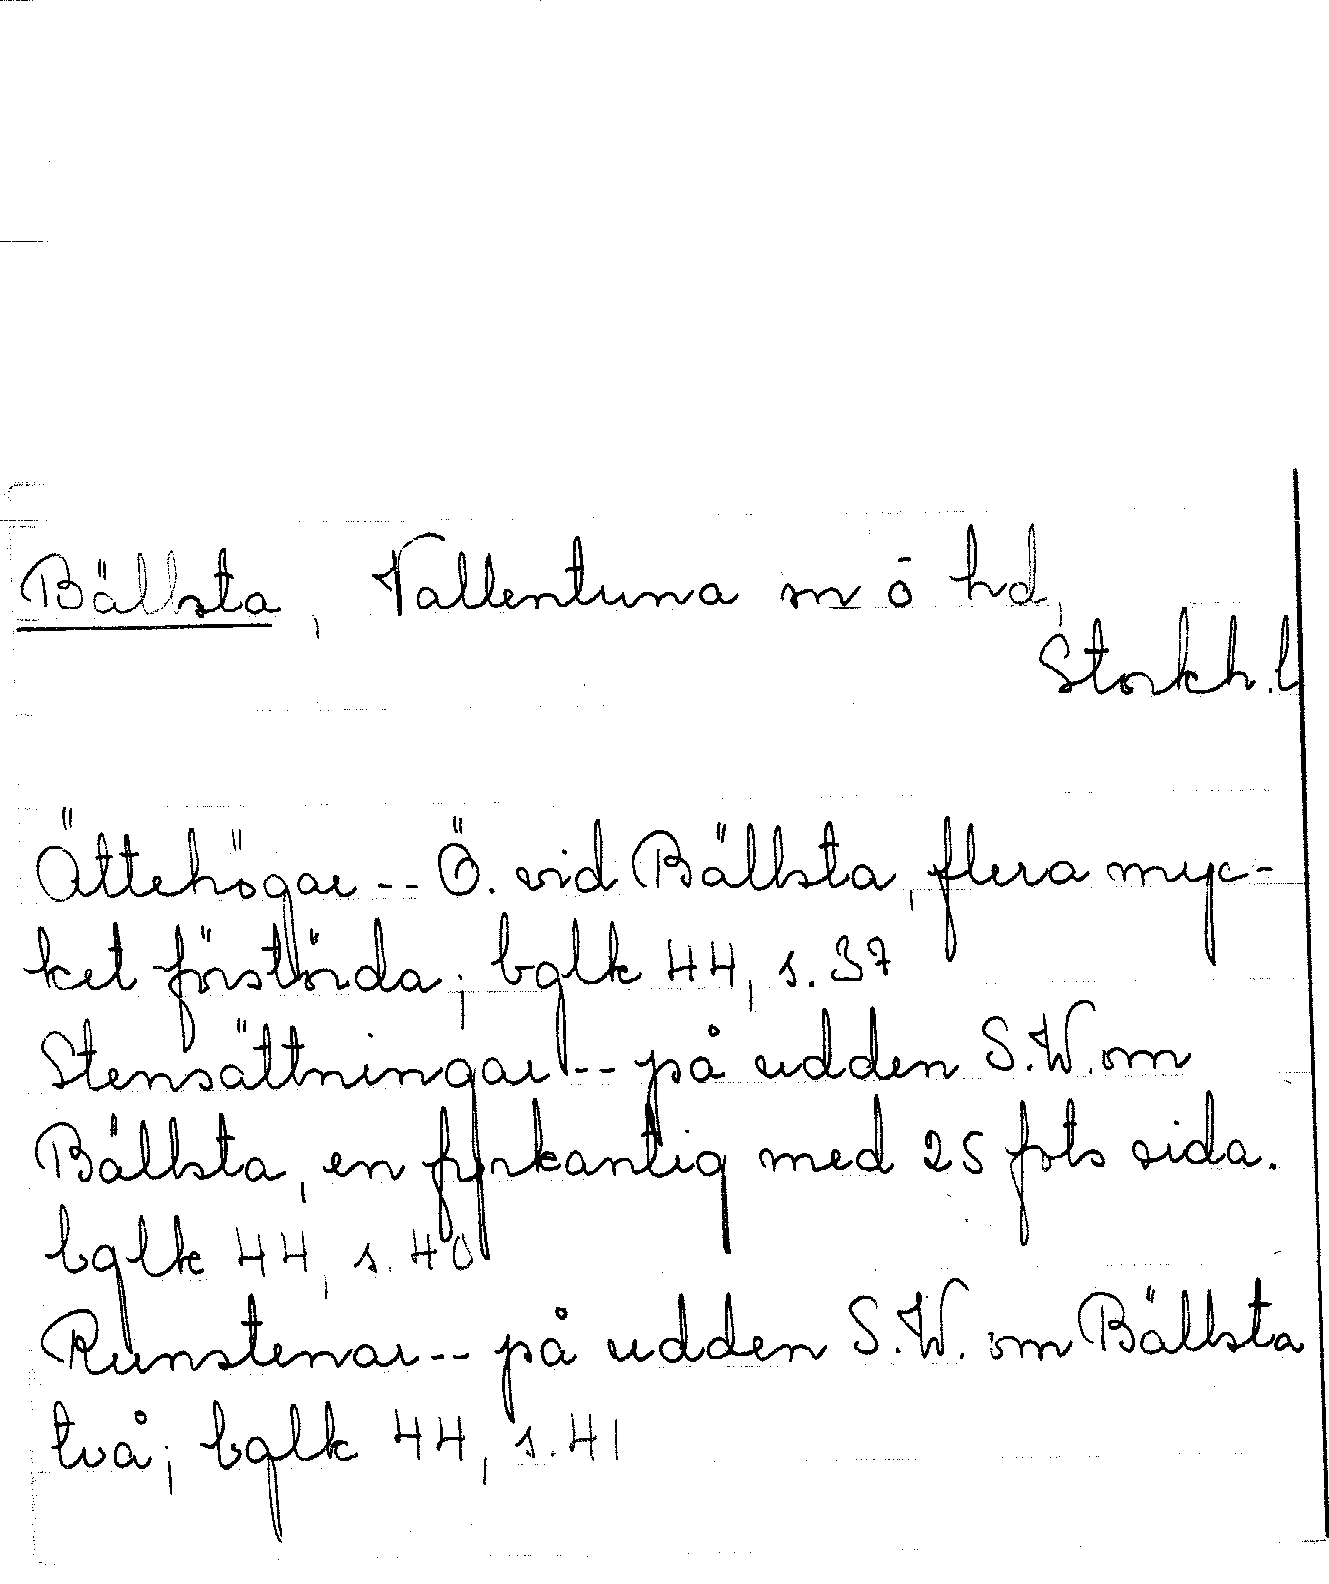 Bällsta, Vallentuna sn o hd,
Stockh. l
Ättehögar -- Ö. vid Bällsta, flera myc-
ket förstörda; bglk 44, s. 37
Stensättningar -- på udden S.W. om
Bällsta, en fyrkantig med 25 fots sida.
bglk 44, s. 40
Runstenar -- på udden S.W. om Bällsta
två; bglk 44, s. 41